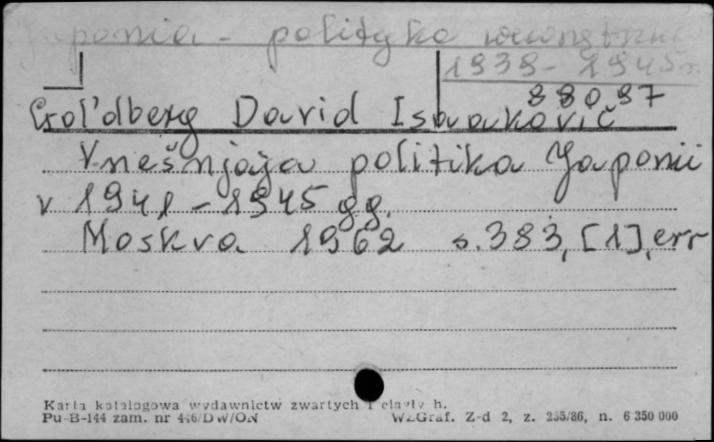 Japonia - polityka wewnętrzna
1939 - 1945 r.
88087
Gol'dberg David Isaakovič
Vnešnjaja politika Japonii
v 1941 - 1945 gg.
Moskva 1962 s. 383, [1], err
Karta katalogowa wydawnictw zwartych i ciągły h.
Pu-B-144 zam. nr 446/DW/ON WZGraf. Z-d 2, z. 235/86, n. 6 350 000